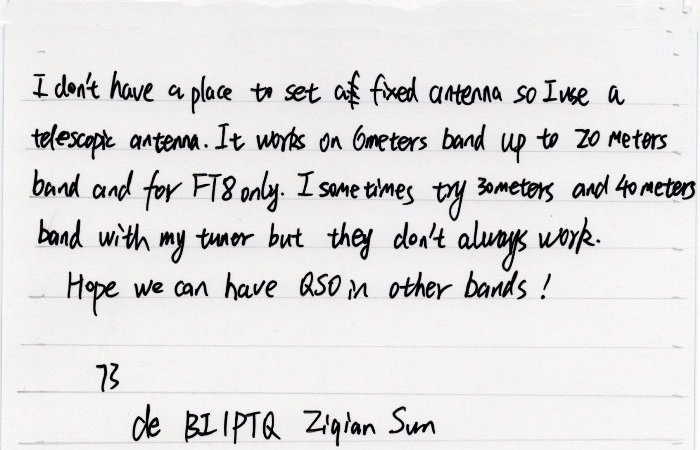 I don't have a place to set a fixed antenna so I use a
telescopic antenna. It works on 6meters band up to 20 meters
band and for FT8 only. I sometimes try 30meters and 40meters
band with my tuner but they don't always work.
Hope we can have QSO in other bands!
73
de BI1PTQ Ziqian Sun